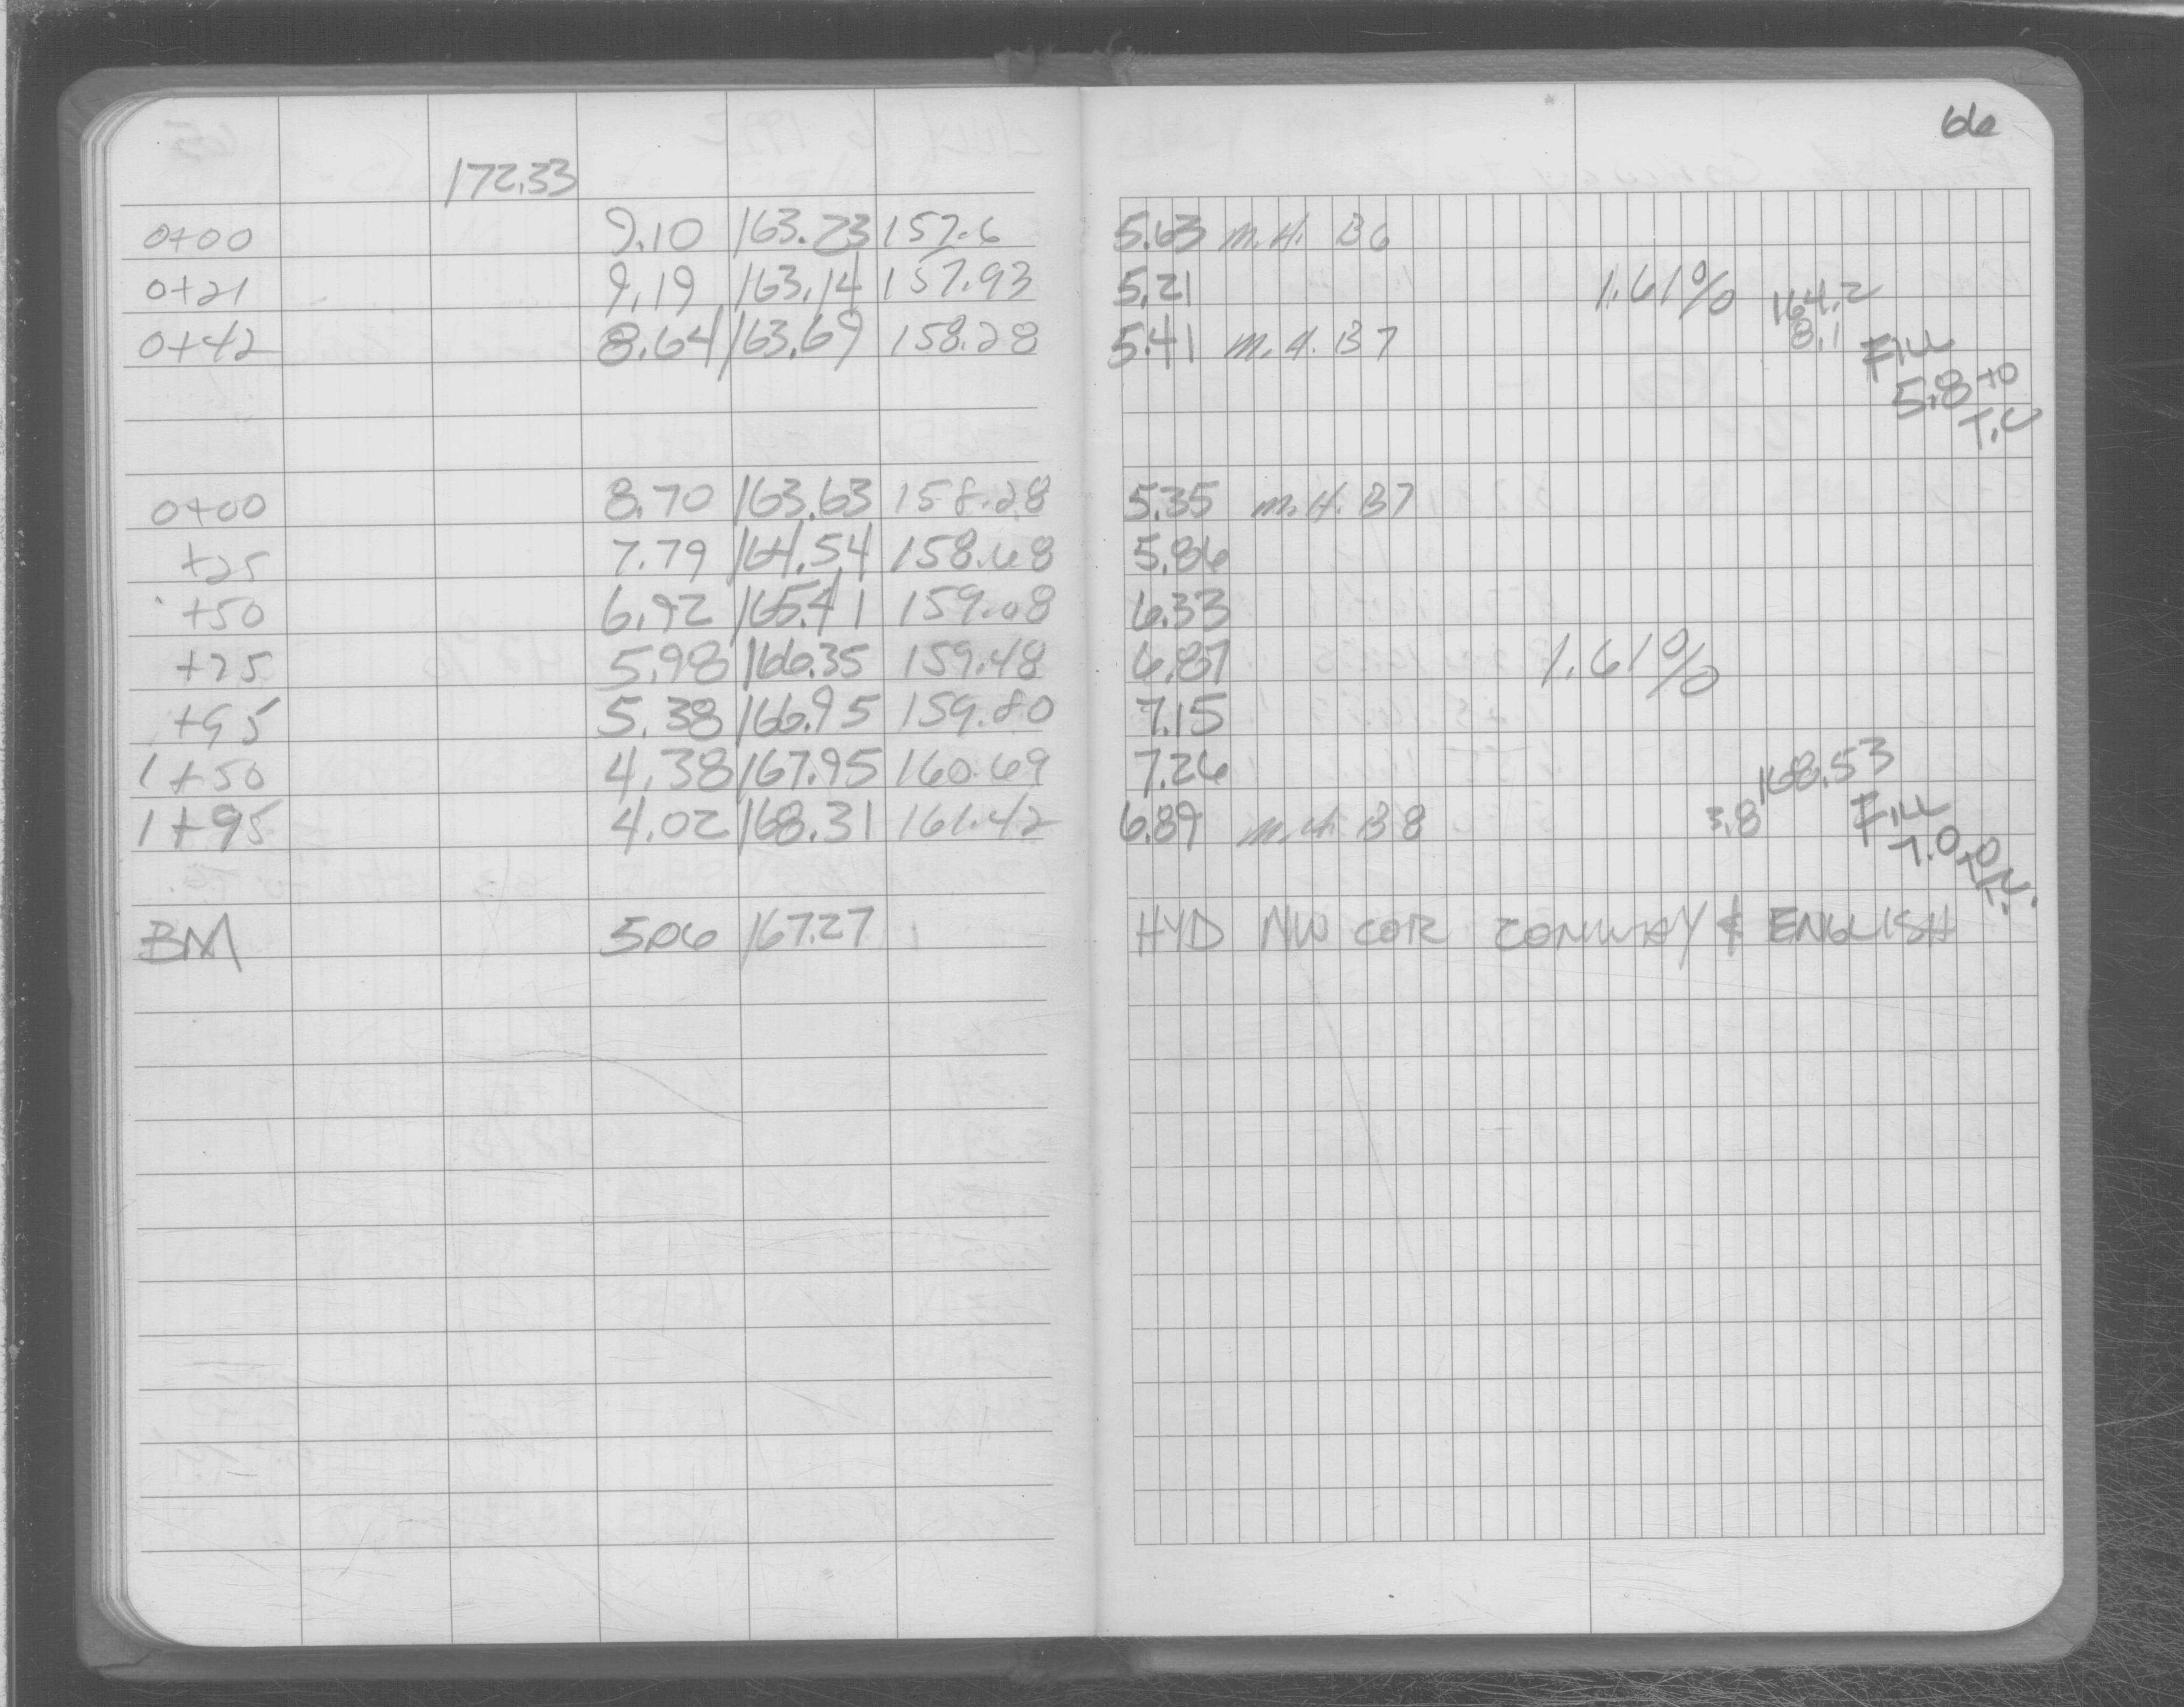 66
172.33
0+00 9.10 163.23 157.6 5.63 M.H. B6
0+21 9.19 163.14 157.93 5.21 1.61% 164.2
0+42 8.64 163.69 158.28 5.41 M.H. B7 8.1 FILL
5.8 to
T.C
0+00 8.70 163.63 158.28 5.35 M.H. B7
+25 7.79 164.54 158.68 5.86
+50 6.92 165.41 159.08 6.33
+75 5.98 166.35 159.48 6.87 1.61%
+95 5.38 166.95 159.80 7.15
1+50 4.38 167.95 160.69 7.26 168.53
1+95 4.02 168.31 161.42 6.89 M.H. B8 3.8 FILL
7.0 to
BM 5.06 167.27 HYD NW COR CONWAY & ENGLISH